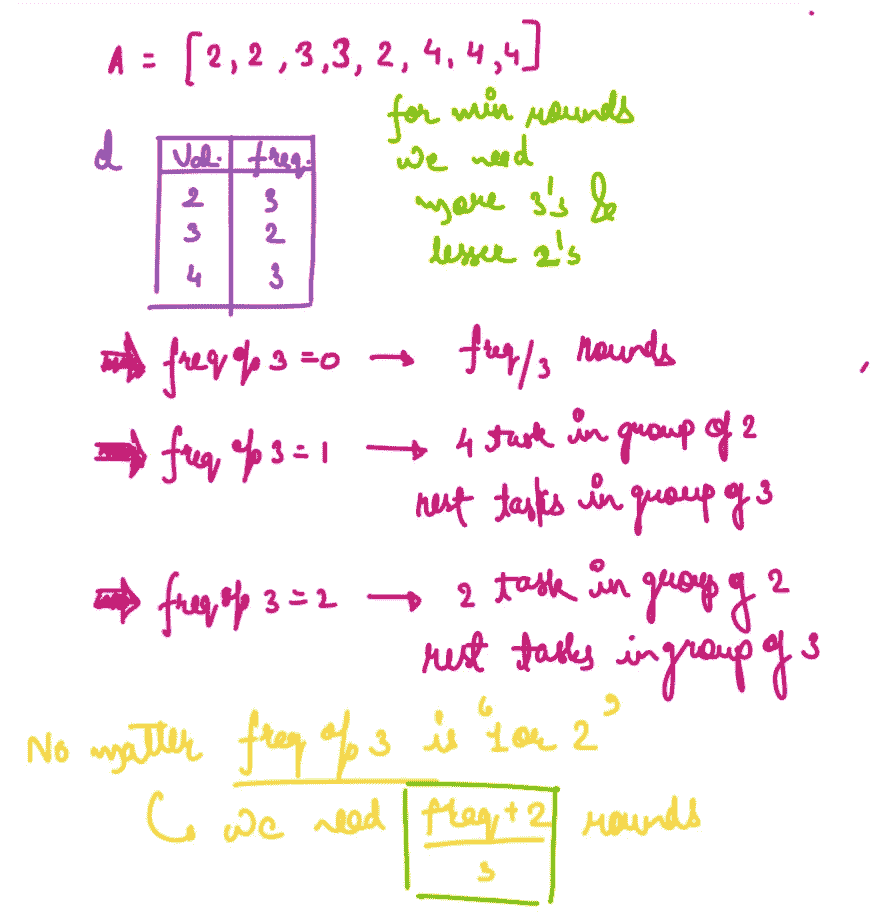 A = [2, 2, 3, 3, 2, 4, 4, 4]
for min rounds
we need
more 3's &
lesser 2's
d
Val. freq.
2 3
3 2
4 3
⇒ freq % 3 = 0 → freq/3 rounds
⇒ freq % 3 = 1 → 4 task in group of 2
rest tasks in group of 3
⇒ freq % 3 = 2 → 2 task in group of 2
rest tasks in group of 3
No matter freq % 3 is '1 or 2'
↳ we need freq + 2 rounds
3